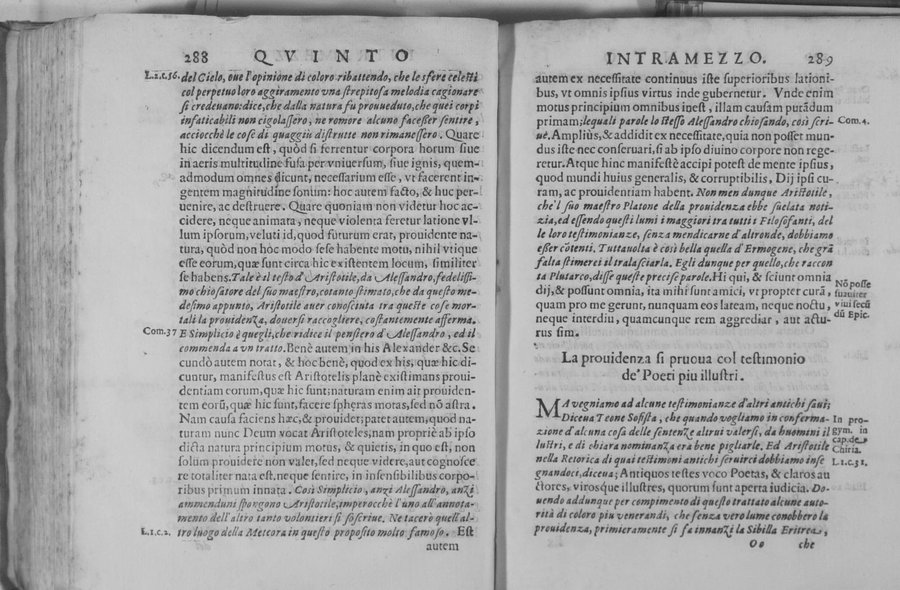 288 QVINTO
L.2.t.56. del Cielo, oue l'opinione di coloro ribattendo, che le sfere celesti
col perpetuo loro aggiramento vna strepitosa melodia cagionare
si credeuano: dice, che dalla natura fu proueduto, che quei corpi
infaticabili non cigolassero, ne romore alcuno facesser sentire,
acciocchè le cose di quaggiù distrutte non rimanessero. Quare
hic dicendum est, quòd si ferrentur corpora horum siue
in aeris multitudine fusa per vniuersum, siue ignis, quem-
admodum omnes dicunt, necessarium esse, vt facerent in-
gentem magnitudine sonum: hoc autem facto, & huc per-
uenire, ac destruere. Quare quoniam non videtur hoc ac-
cidere, neque animata, neque violenta feretur latione vl-
lum ipsorum, veluti id, quod futurum erat, prouidente na-
tura, quòd non hoc modo sese habente motu, nihil vtique
esse eorum, quæ sunt circa hic existentem locum, similiter
se habens. Tale è il testo d'Aristotile, da Alessandro, fedelissi-
mo chiosatore del suo maestro, cotanto stimato, che da questo me-
desimo appunto, Aristotile auer conosciuta tra queste cose mor-
tali la prouidenza, douersi raccogliere, costantemente afferma.
Com.37 E Simplicio è quegli, che ridice il pensiero d'Alessandro, ed il
commenda a vn tratto. Benè autem in his Alexander &c. Se
cundò autem notat, & hoc benè, quod ex his, quæ hic di-
cuntur, manifestus est Aristotelis planè existimans proui-
dentiam eorum, quæ hic sunt; naturam enim ait prouiden-
tem eorũ, quæ hic sunt, facere spheras motas, sed nõ astra.
Nam causa faciens hæc, & prouidet; pater autem, quod na-
turam nunc Deum vocat Aristoteles; nam propriè ab ipso
dicta natura principium motus, & quietis, in quo est, non
solùm prouidere non valet, sed neque videre, aut cognosce
re totaliter nata est, neque sentire, in insensibilibus corpo-
ribus primum innata. Così Simplicio, anzi Alessandro, anzi
ammenduni spongono Aristotile, imperocchè l'uno all'annota-
mento dell'altro tanto volontieri si soscriue. Ne tacerò quell'al-
L.1.c.2. tro luogo della Meteora in questo proposito molto famoso. Est
autem
INTRAMEZZO. 289
autem ex necessitate continuus iste superioribus lationi-
bus, vt omnis ipsius virtus inde gubernetur. Vnde enim
motus principium omnibus inest, illam causam putãdum
primam; lequali parole lo stesso Alessandro chiosando, così scri- Com.4.
ue. Ampliùs, & addidit ex necessitate, quia non posset mun-
dus iste nec conseruari, si ab ipso diuino corpore non rege-
retur. Atque hinc manifestè accipi potest de mente ipsius,
quod mundi huius generalis, & corruptibilis, Dij ipsi cu-
ram, ac prouidentiam habent. Non men dunque Aristotile,
che'l suo maestro Platone della prouidenza ebbe suelata noti-
zia, ed essendo questi lumi i maggiori tra tutti i Filosofanti, del
le loro testimonianze, senza mendicarne d'altronde, dobbiamo
esser cõtenti. Tuttauolta è così bella quella d'Ermogene, che grã
falta stimerei il tralasciarla. Egli dunque per quello, che raccon
ta Plutarco, disse queste precise parole. Hi qui, & sciunt omnia
dij, & possunt omnia, ita mihi sunt amici, vt propter curã,
quam pro me gerunt, nunquam eos lateam, neque noctu,
neque interdiu, quamcunque rem aggrediar, aut actu-
rus sim.
Nõ posse
suauiter
viui secũ
dũ Epic.
La prouidenza si pruoua col testimonio
de' Poeti piu illustri.
MA vegniamo ad alcune testimonianze d'altri antichi saui;
Diceua Teone Sofista, che quando vogliamo in conferma-
zione d'alcuna cosa delle sentenze altrui valersi, da huomini il
lustri, e di chiara nominanza era bene pigliarle. Ed Aristotile
nella Retorica di quai testimoni antichi seruirci dobbiamo inse
gnando ce, diceua; Antiquos testes voco Poetas, & claros au
ctores, virosque illustres, quorum sunt aperta iudicia. Do-
uendo addunque per compimento di questo trattato alcune auto-
rità di coloro piu venerandi, che senza vero lume conobbero la
prouidenza, primieramente si fa innanzi la Sibilla Eritrea,
In pro-
gym. in
cap. de
Chiria.
L.1.c.31.
Oo che